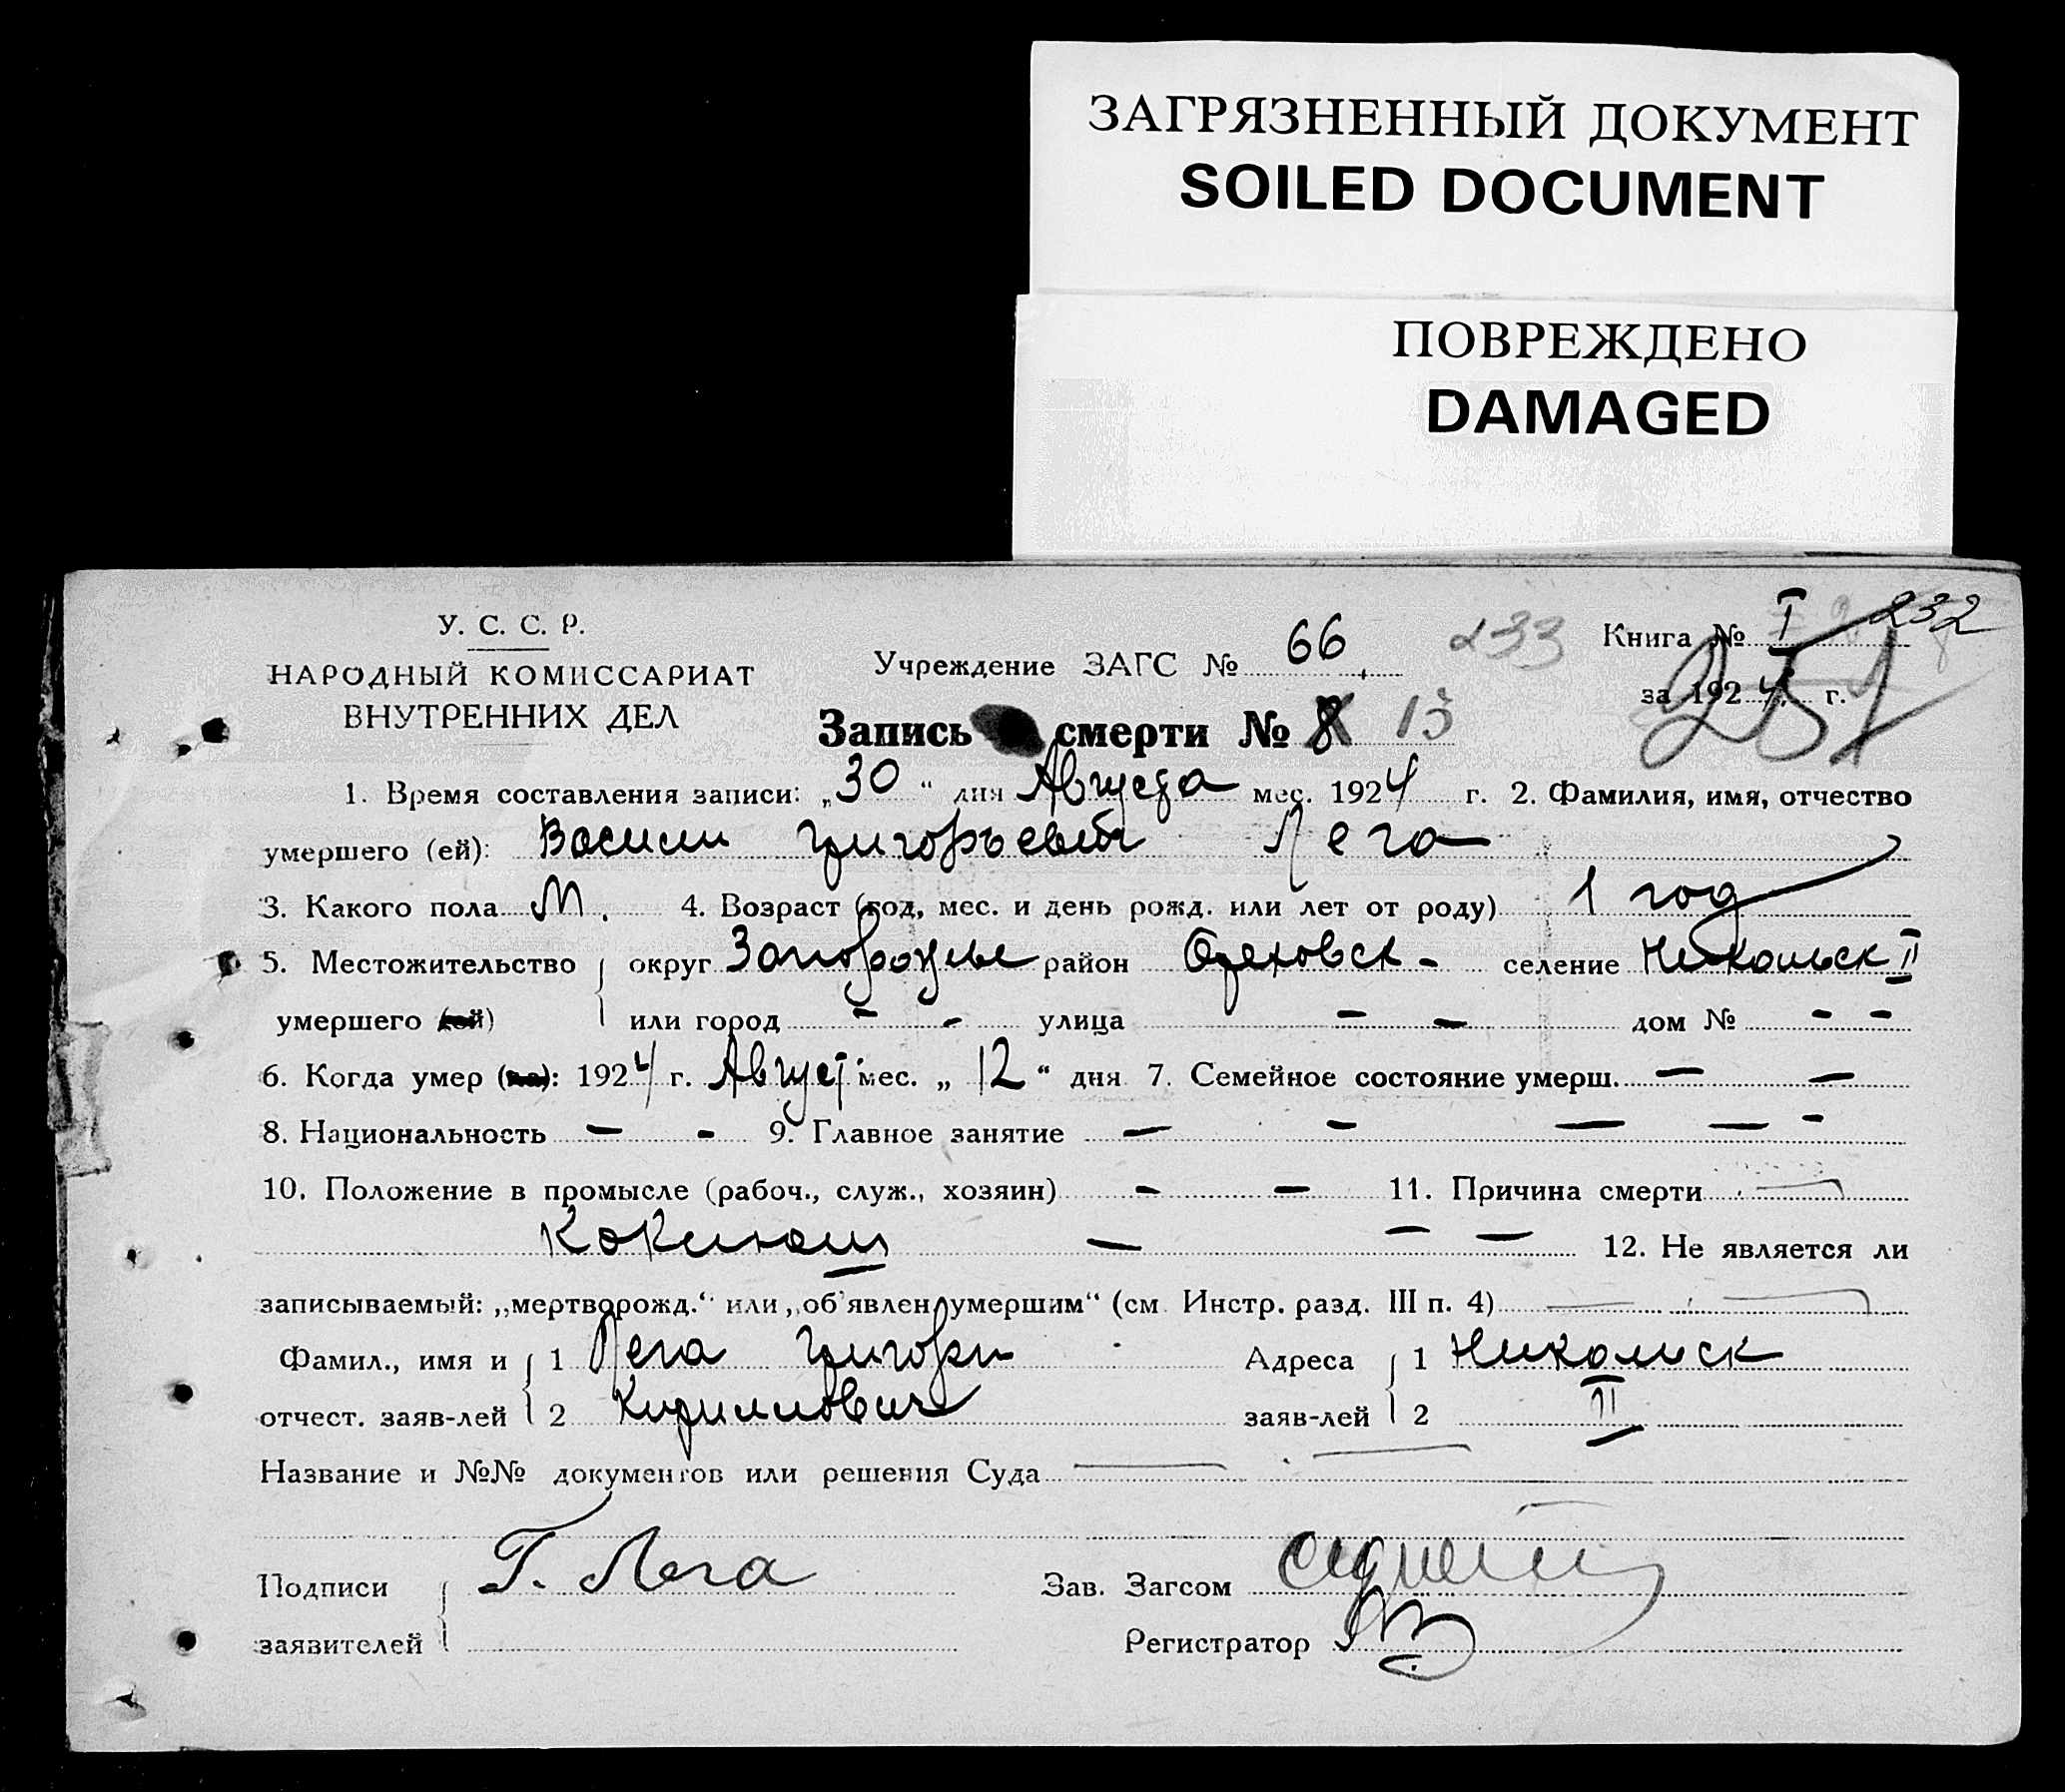 ЗАГРЯЗНЕННЫЙ ДОКУМЕНТ
SOILED DOCUMENT
ПОВРЕЖДЕНО
DAMAGED
У. С. С. Р.
НАРОДНЫЙ КОМИССАРИАТ
ВНУТРЕННИХ ДЕЛ
Учреждение ЗАГС № 66
233
Книга № I 232
за 1924 г.
251
Запись смерти № 8 13
1. Время составления записи: „30“ дня Августа мес. 1924 г. 2. Фамилия, имя, отчество
умершего (ей): Васили Григорьевич Лега
3. Какого пола М. 4. Возраст (год, мес. и день рожд. или лет от роду) 1 год
5. Местожительство округ Запорожье район Ореховск - селение Никольск II
умершего (ей) или город - - улица - - дом № - -
6. Когда умер (ла): 1924 г. Август мес. „12“ дня 7. Семейное состояние умерш. — —
8. Национальность — - 9. Главное занятие — - — — -
10. Положение в промысле (рабоч., служ., хозяин) - — 11. Причина смерти —
Коклюш — — — 12. Не является ли
записываемый: „мертворожд.“ или „об'явлен умершим“ (см. Инстр. разд. III п. 4) — —
Фамил., имя и 1 Лега Григори Адреса 1 Никольск
отчест. заяв-лей 2 Кириллович заяв-лей 2 II
Название и №№ документов или решения Суда — —
Подписи Г. Лега Зав. Загсом
заявителей Регистратор